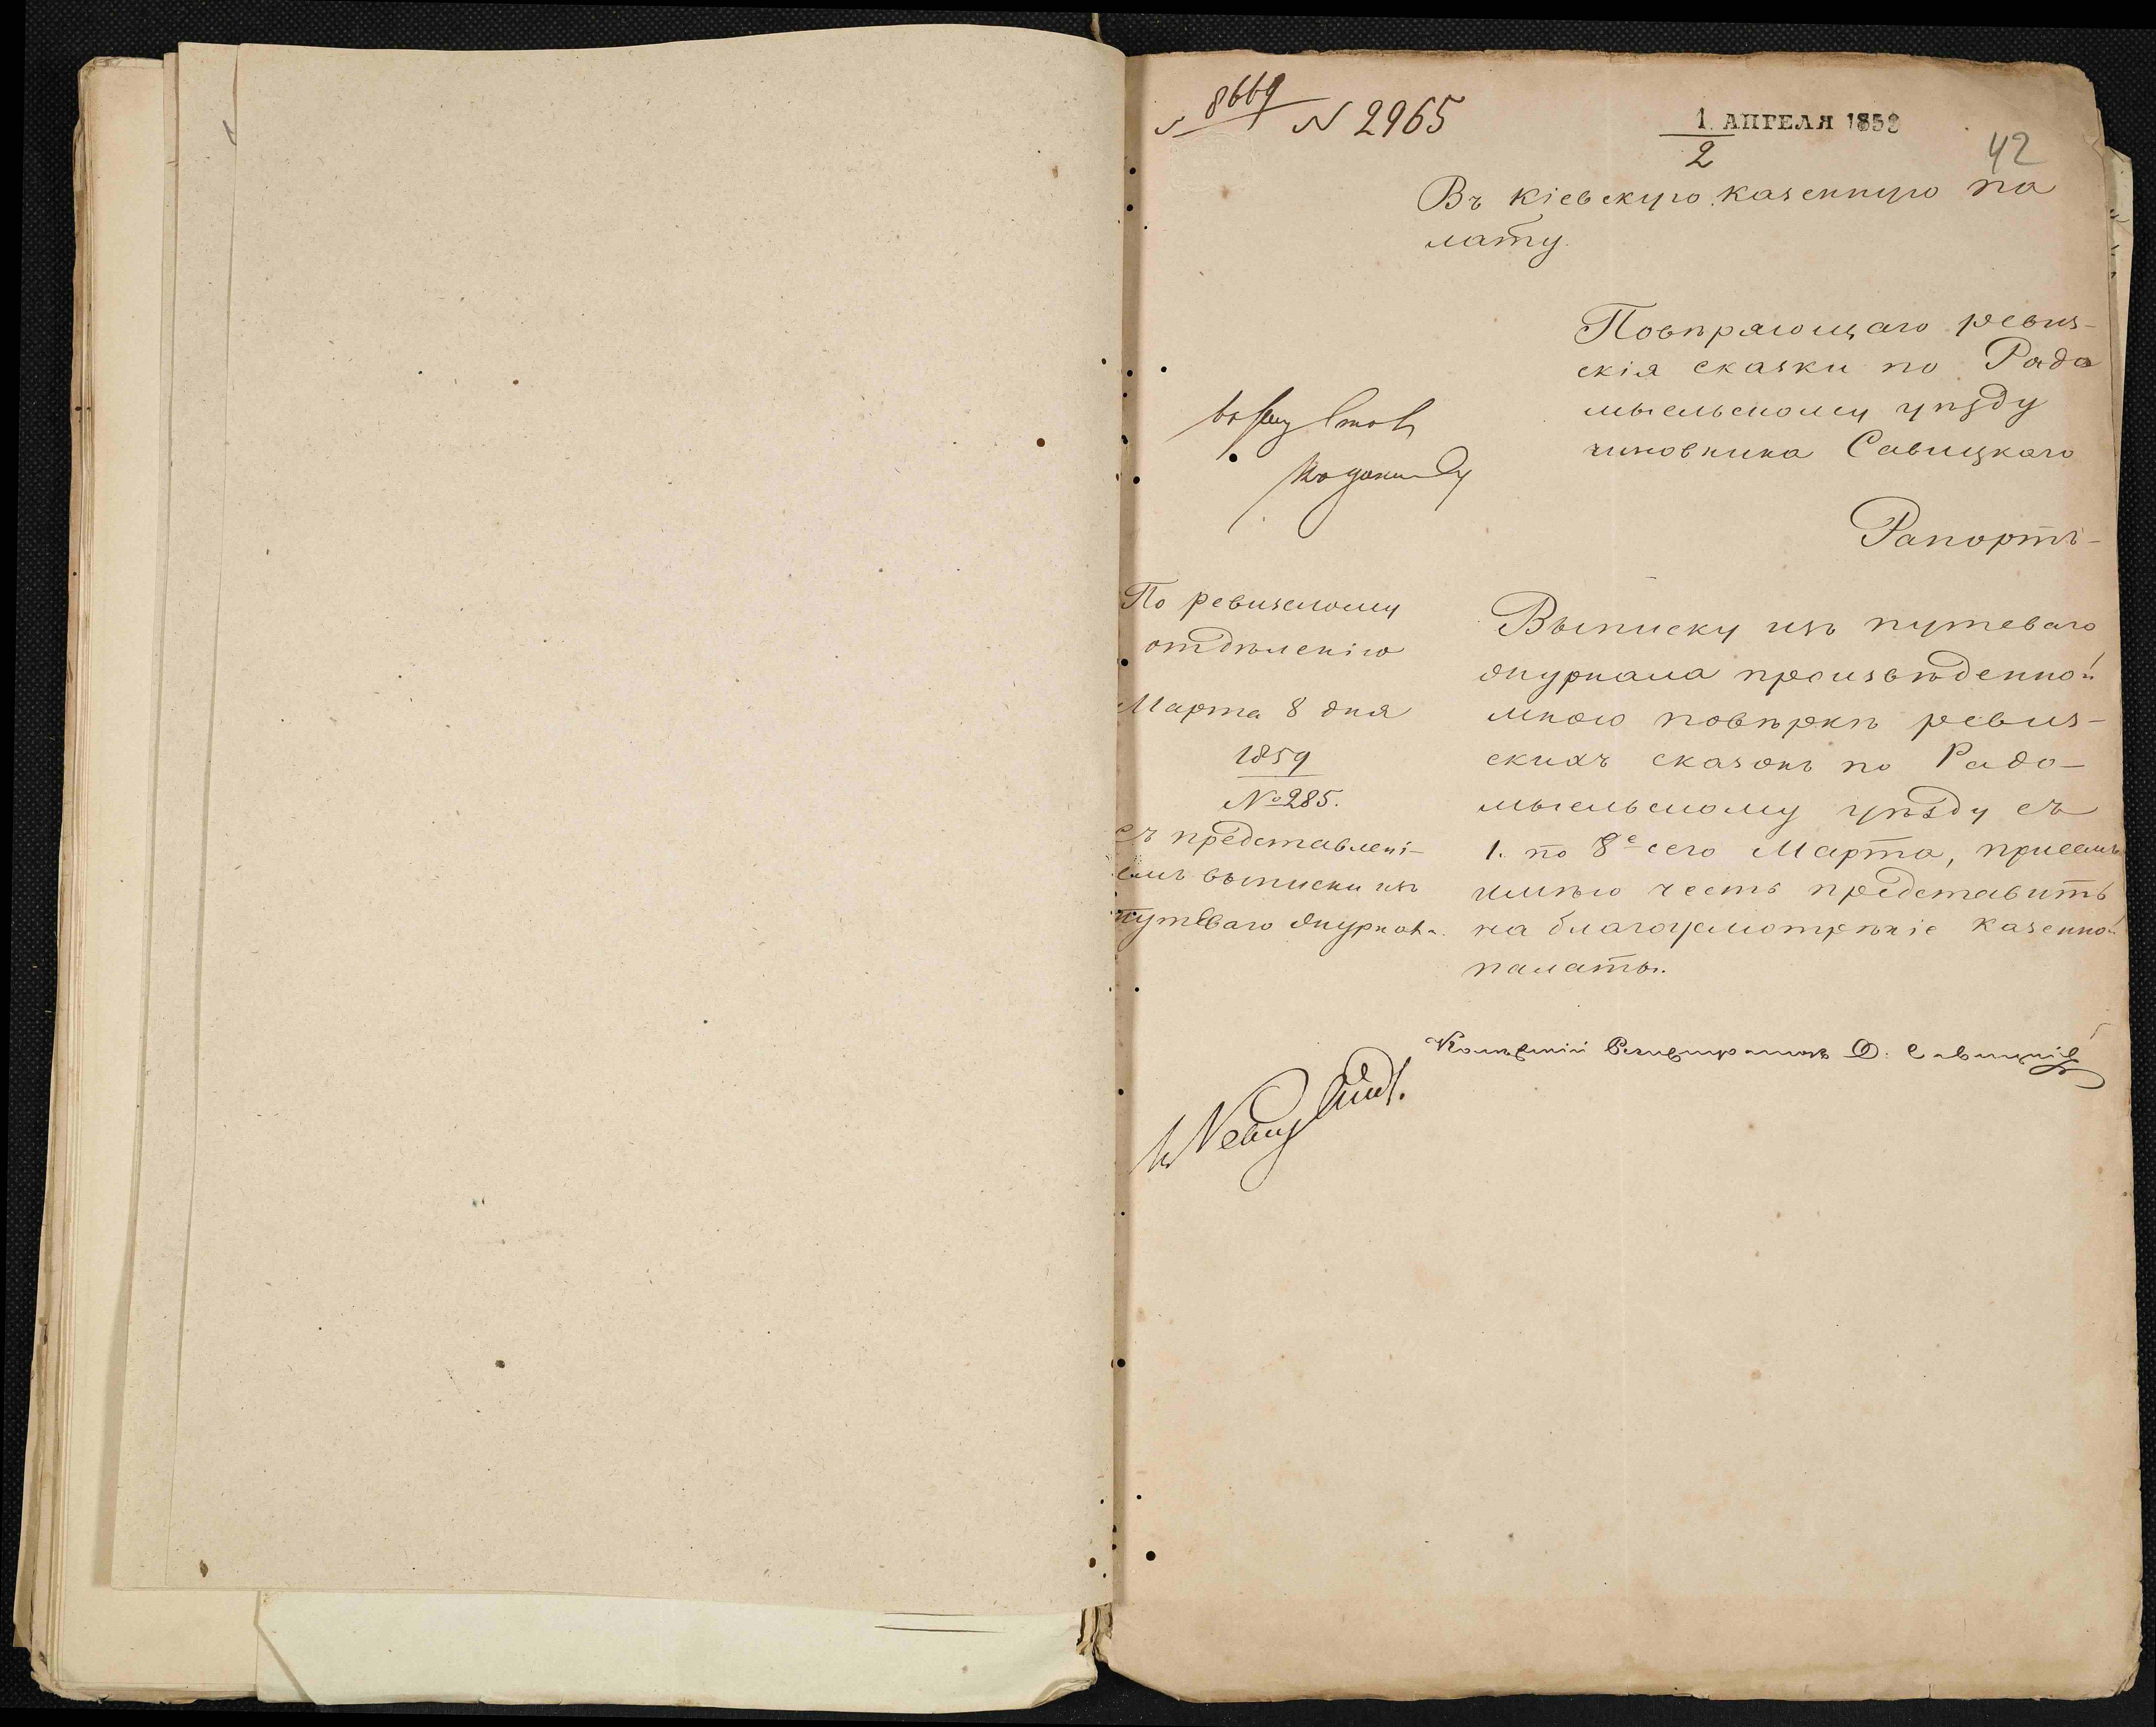 8669
N 2965
1 АПРЕЛЯ 1859
2
42
Въ Кіевскую казенную па
лату.
Повѣряющаго ревиз-
скія сказки по Радо
мысльскому уѣзду
чиновника Савицкаго
Рапортъ-
По ревизскому
отдѣленію
Марта 8 дня
1859
№285.
съ представлені-
емъ выписки изъ
путеваго журнала.
Выписку изъ путеваго
журнала произвѣденной
мною повѣркѣ ревиз-
скихъ сказокъ по Радо-
мысльскому уѣзду съ
1. по 8е сего Марта, присемъ
имѣю честь представить
на благоусмотрѣніе казенной
палаты.
Колежскій Секретарь Савицкій